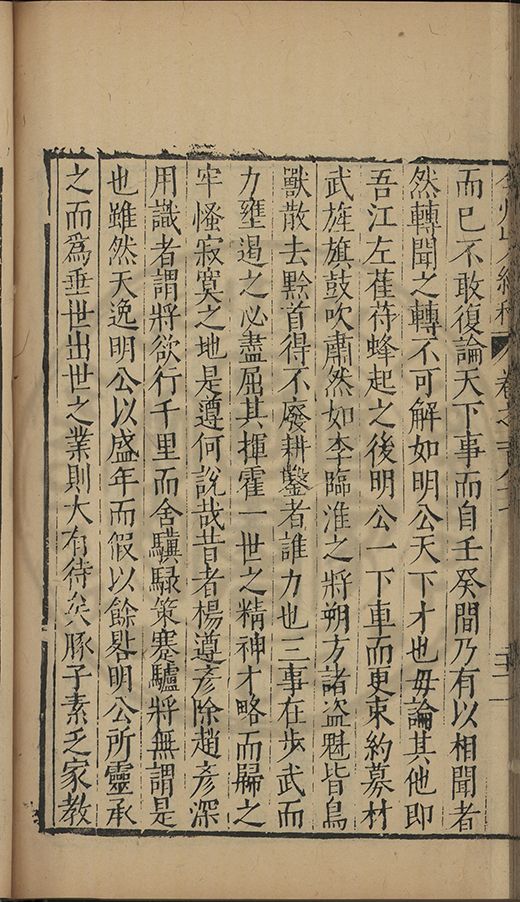 弇州山人續稿 卷之一百八十七 二十一
而已不敢復論天下事而自壬癸間乃有以相聞者
然轉聞之轉不可解如明公天下才也毋論其他即
吾江左萑苻蜂起之後明公一下車而更束約募材
武旌旗鼓吹肅然如李臨淮之將朔方諸盜魁皆鳥
獸散去黔首得不廢耕鑿者誰力也三事在步武而
力壅遏之必盡屈其揮霍一世之精神才略而歸之
牢慅寂寞之地是遵何說哉昔者楊遵彥除趙彥深
用識者謂將欲行千里而舍驥騄策蹇驢將無謂是
也雖然天逸明公以盛年而假以餘晷明公所靈承
之而爲垂世出世之業則大有待矣豚子素乏家教